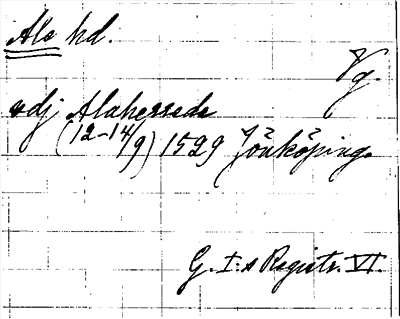 Ale hd.
Vg.
vdj Alahersede
(12-14/9) 1529 Jönköping.
G. I:s Registr. VI.